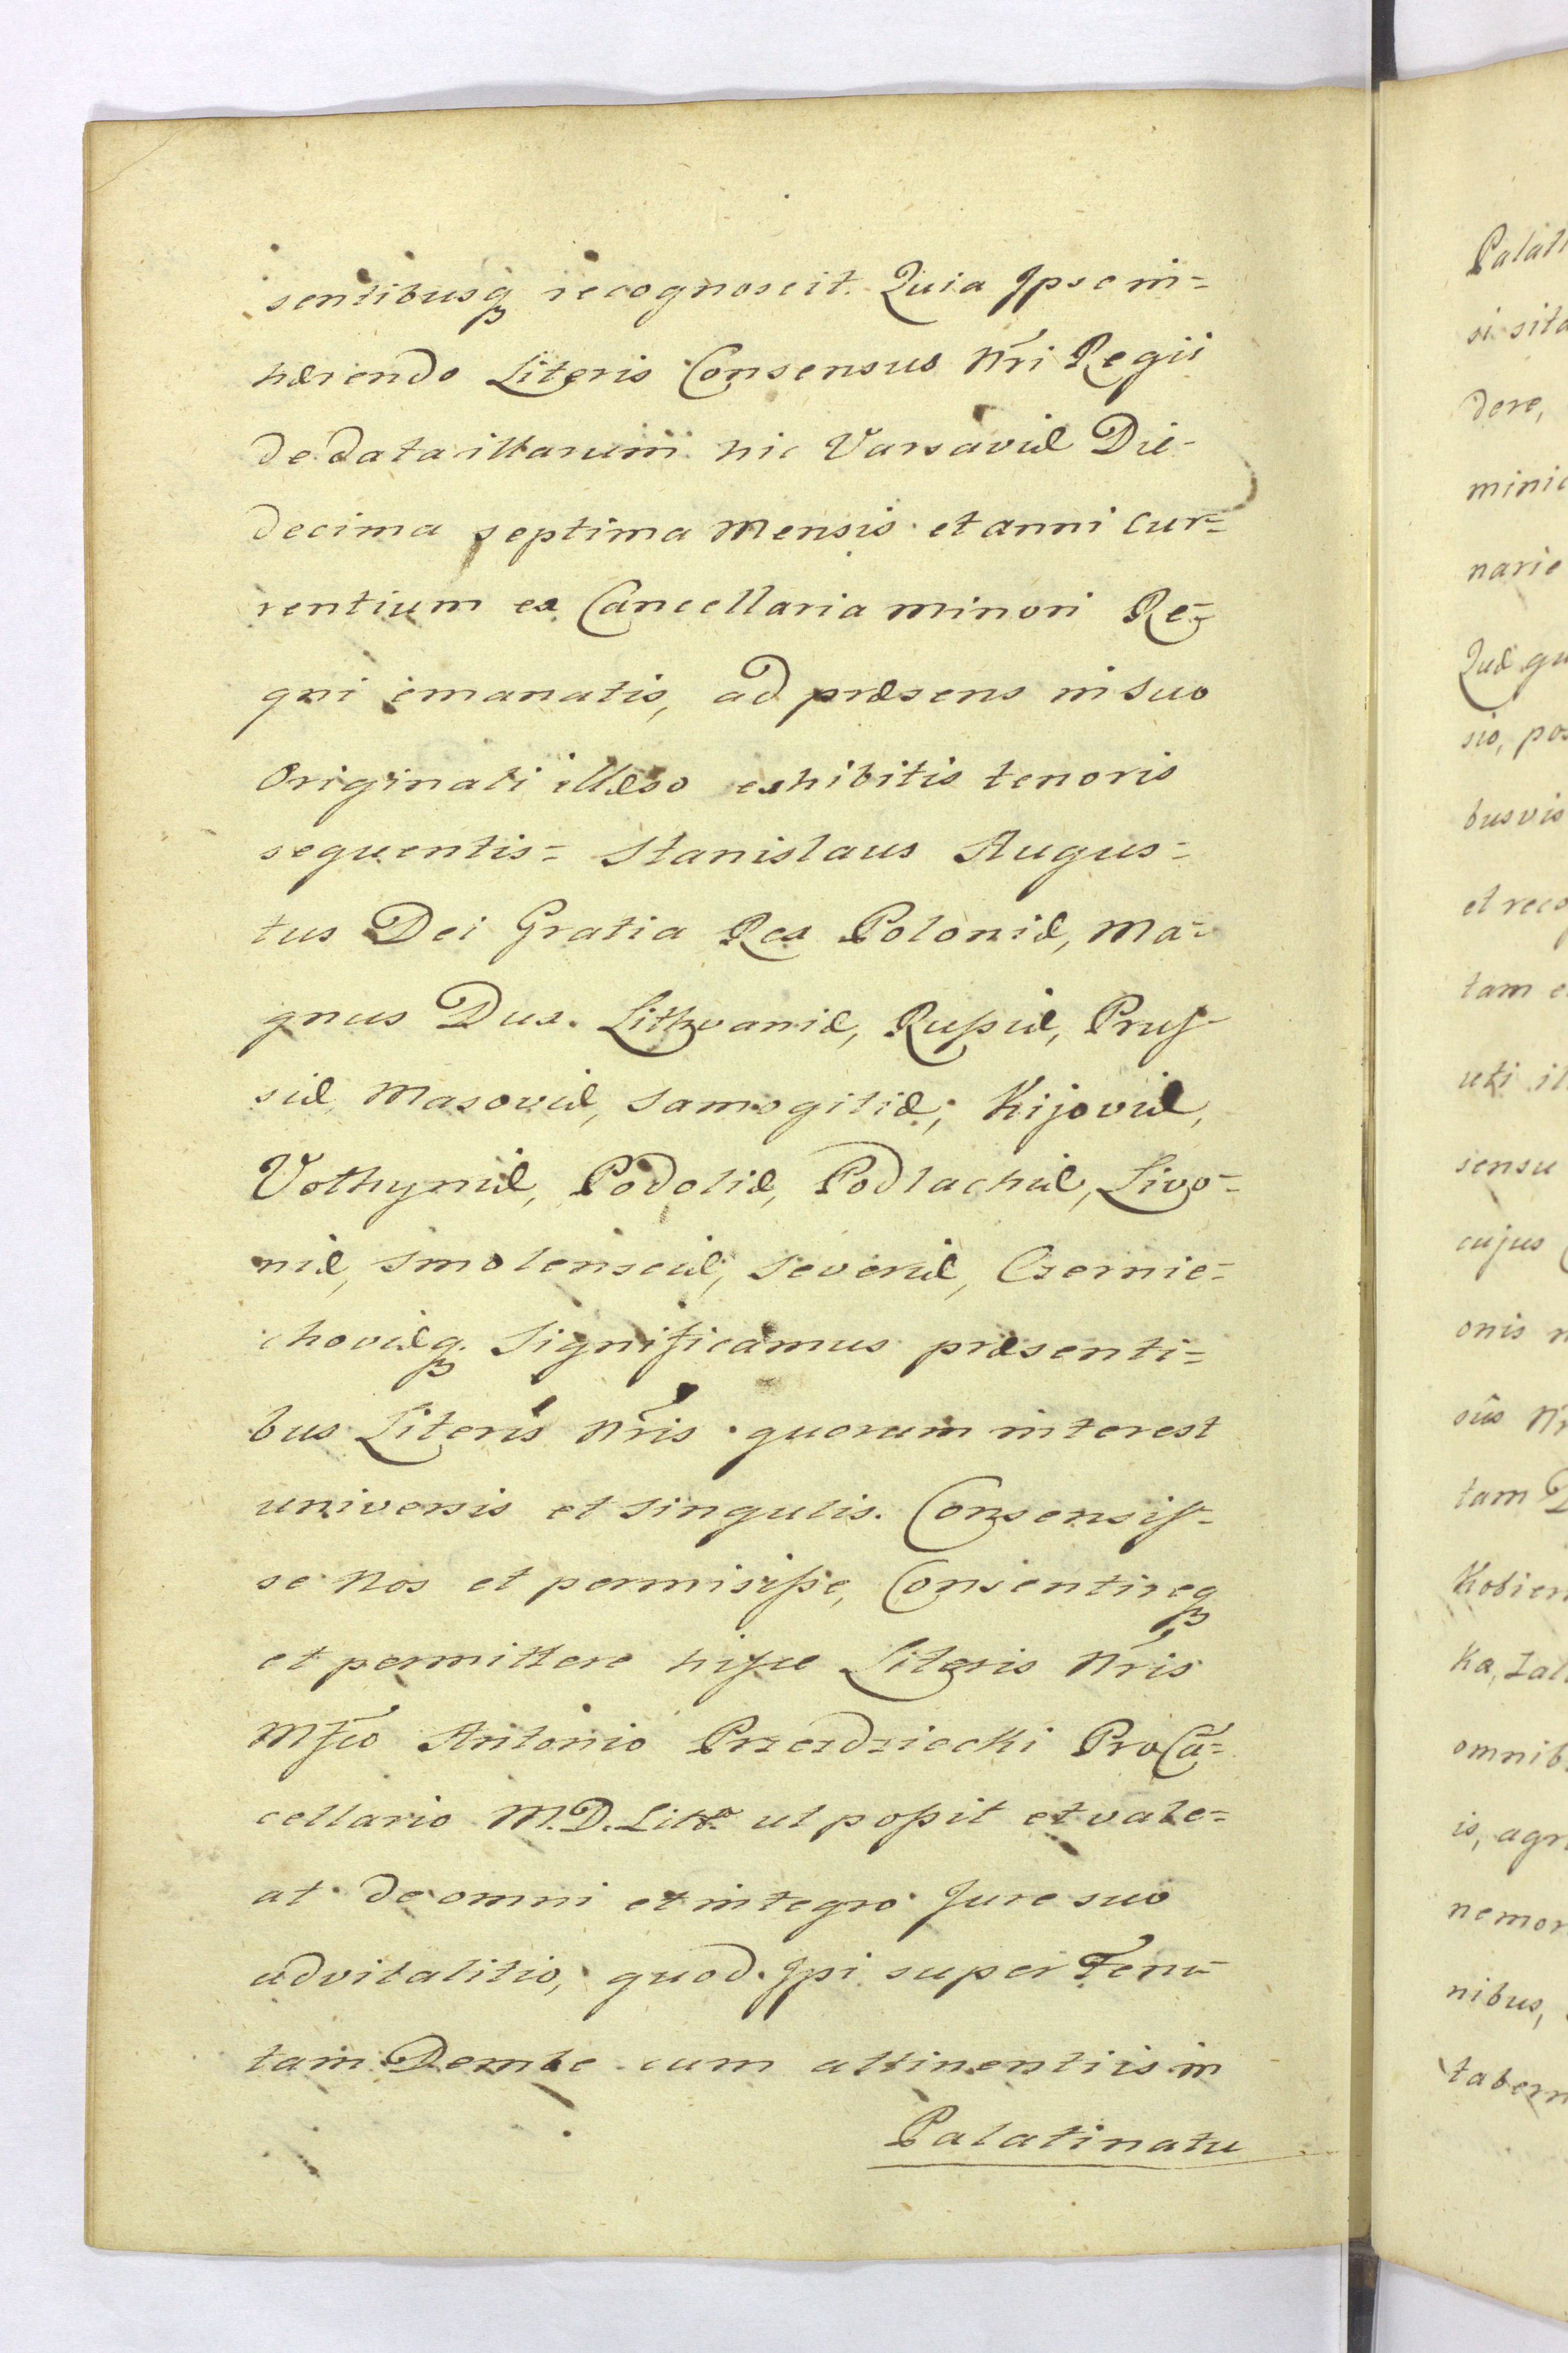 sentibusq₃ recognoscit. Quia Ipse in=
hærendo Literis Consensus Nr̃i Regii
de data illarum hic Varsaviæ Die
decima septima Mensis et anni cur=
rentium ex Cancellaria minori Re=
gni emanatis, ad præsens in suo
Originali illæso exhibitis tenoris
sequentis= Stanislaus Augus=
tus Dei Gratia Rex Poloniæ, Ma=
gnus Dux Lithvaniæ, Rußiæ, Pruſ=
siæ, Masoviæ, Samogitiæ, Kijoviæ,
Volhyniæ, Podoliæ, Podlachiæ, Livo=
niæ, Smolensciæ, Severiæ, Czernie=
choviæq₃ Significamus præsenti=
bus Literis Nr̃is quorum interest
universis et singulis. Consensiſ=
se Nos et permisiße, Consentireq₃
et permittere hisce Literis Nr̃is
Mfco Antonio Przezdziecki ProCã=
cellario M.D.Litt. ut poßit et vale=
at de omni et integro Jure suo
advitalitio, quod Ipi super Tenu=
tam Dembe cum attinentiis in
Palatinatu
Palati
si sita
dere,
minic
narie
Quæ qu
sio, pos
busvis
et reco
tam e
uti il
sensu
cujus
onis n
sûs Nr
tam D
Kobier
ka, Zal
omnib
is, agr
nemor
nibus,
tabern